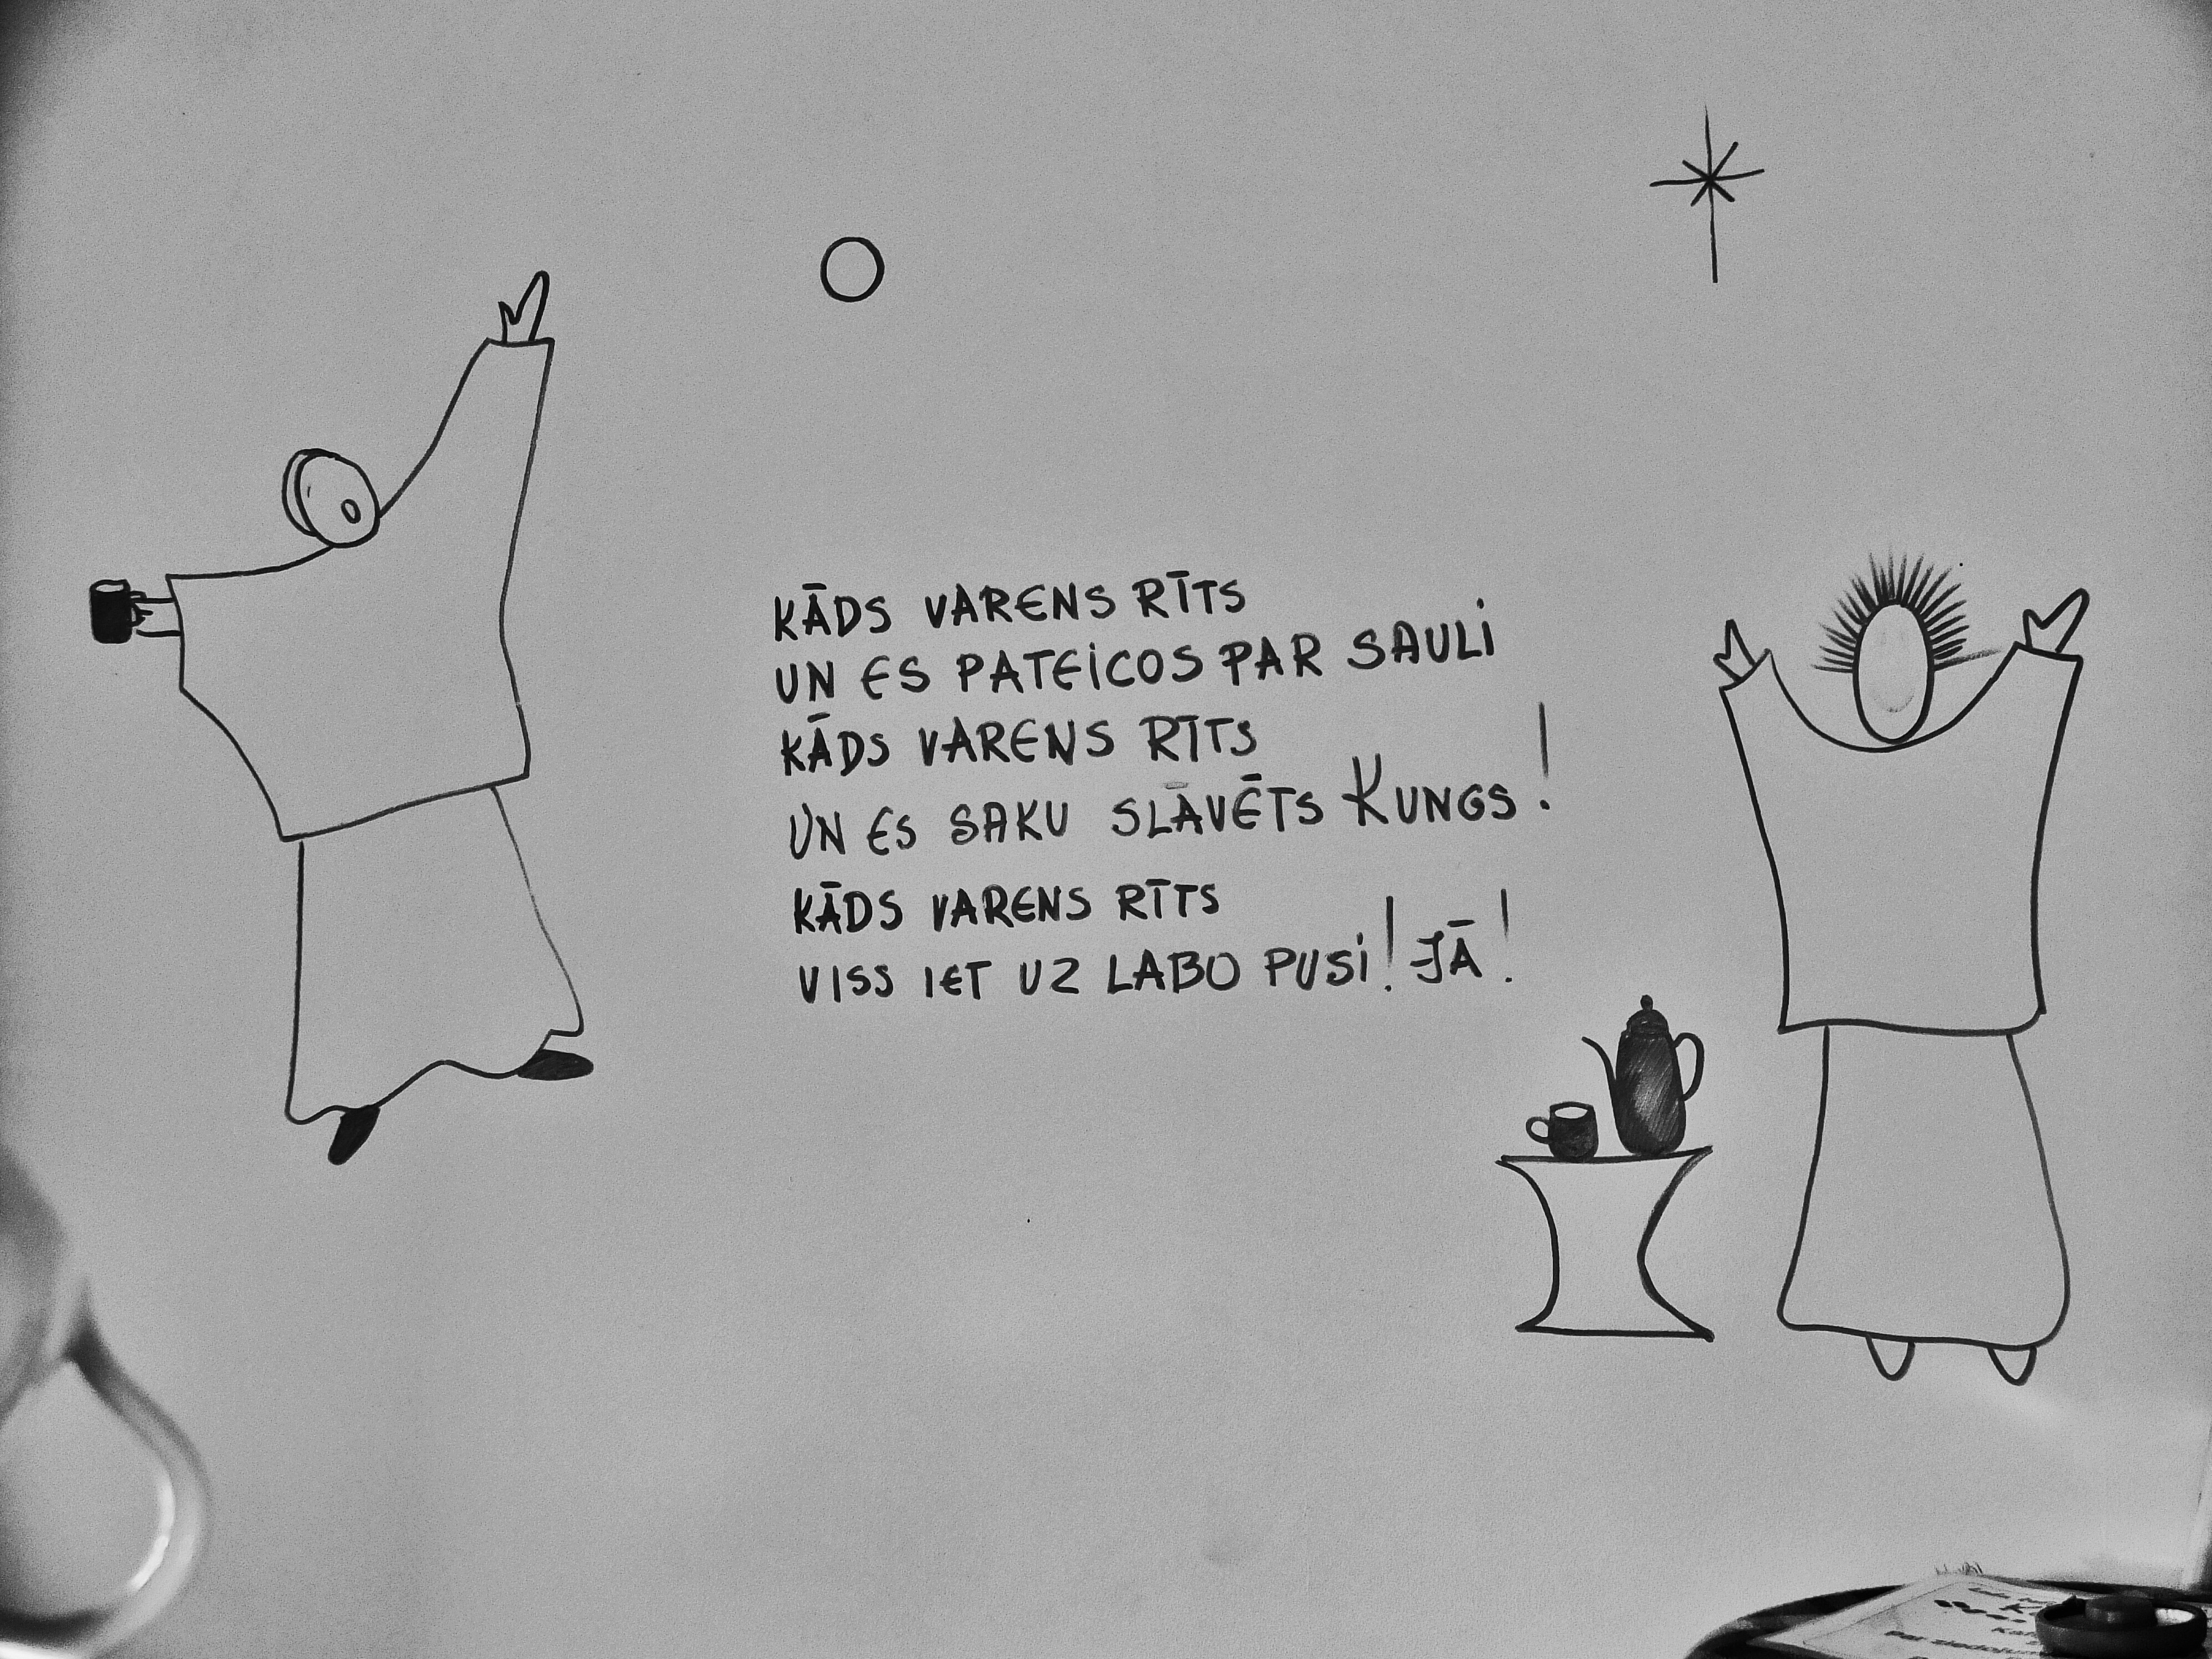 KĀDS VARENS RĪTS
UN ES PATEICOS PAR SAULI
KĀDS VARENS RĪTS
UN ES SAKU SLĀVĒTS KUNGS!
KĀDS VARENS RĪTS
VISS IET UZ LABO PUSI! JĀ!